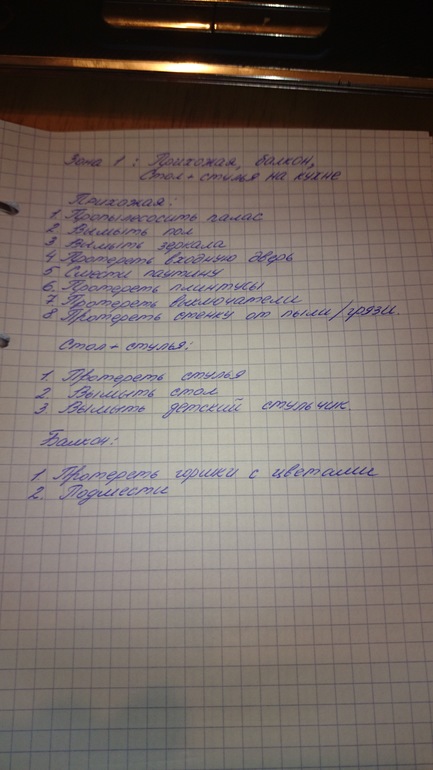 Зона 1: Прихожая, балкон,
Стол+ стулья на кухне
Прихожая:
1. Пропылесосить палас
2 Вымыть пол
3 Вымыть зеркала
4 Протереть входную дверь
5 Смести паутину
6. Протереть плинтусы
7 Протереть выключатели
8 Протереть стенку от пыли/грязи.
Стол+ стулья:
1. Протереть стулья
2 Вымыть стол
3. Вымыть детский стульчик.
Балкон:
1. Протереть горшки с цветами
2. Подмести